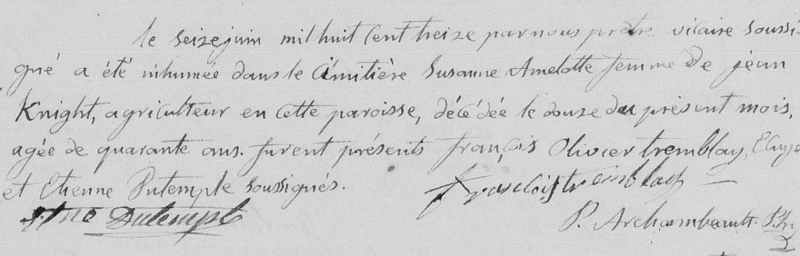 le seize juin mil huit cent treize par nous prêtre vicaire soussi-
gné a été inhumée dans le cimitière Susanne Amelotte femme de jean
Knight, agriculteur en cette paroisse, décédée le douze du présent mois,
agée de quarante ans. furent présents françois Olivier tremblay,
et Etienne Dutemple soussignés. françois tremblay
Dutemple P. Archambault Ptr